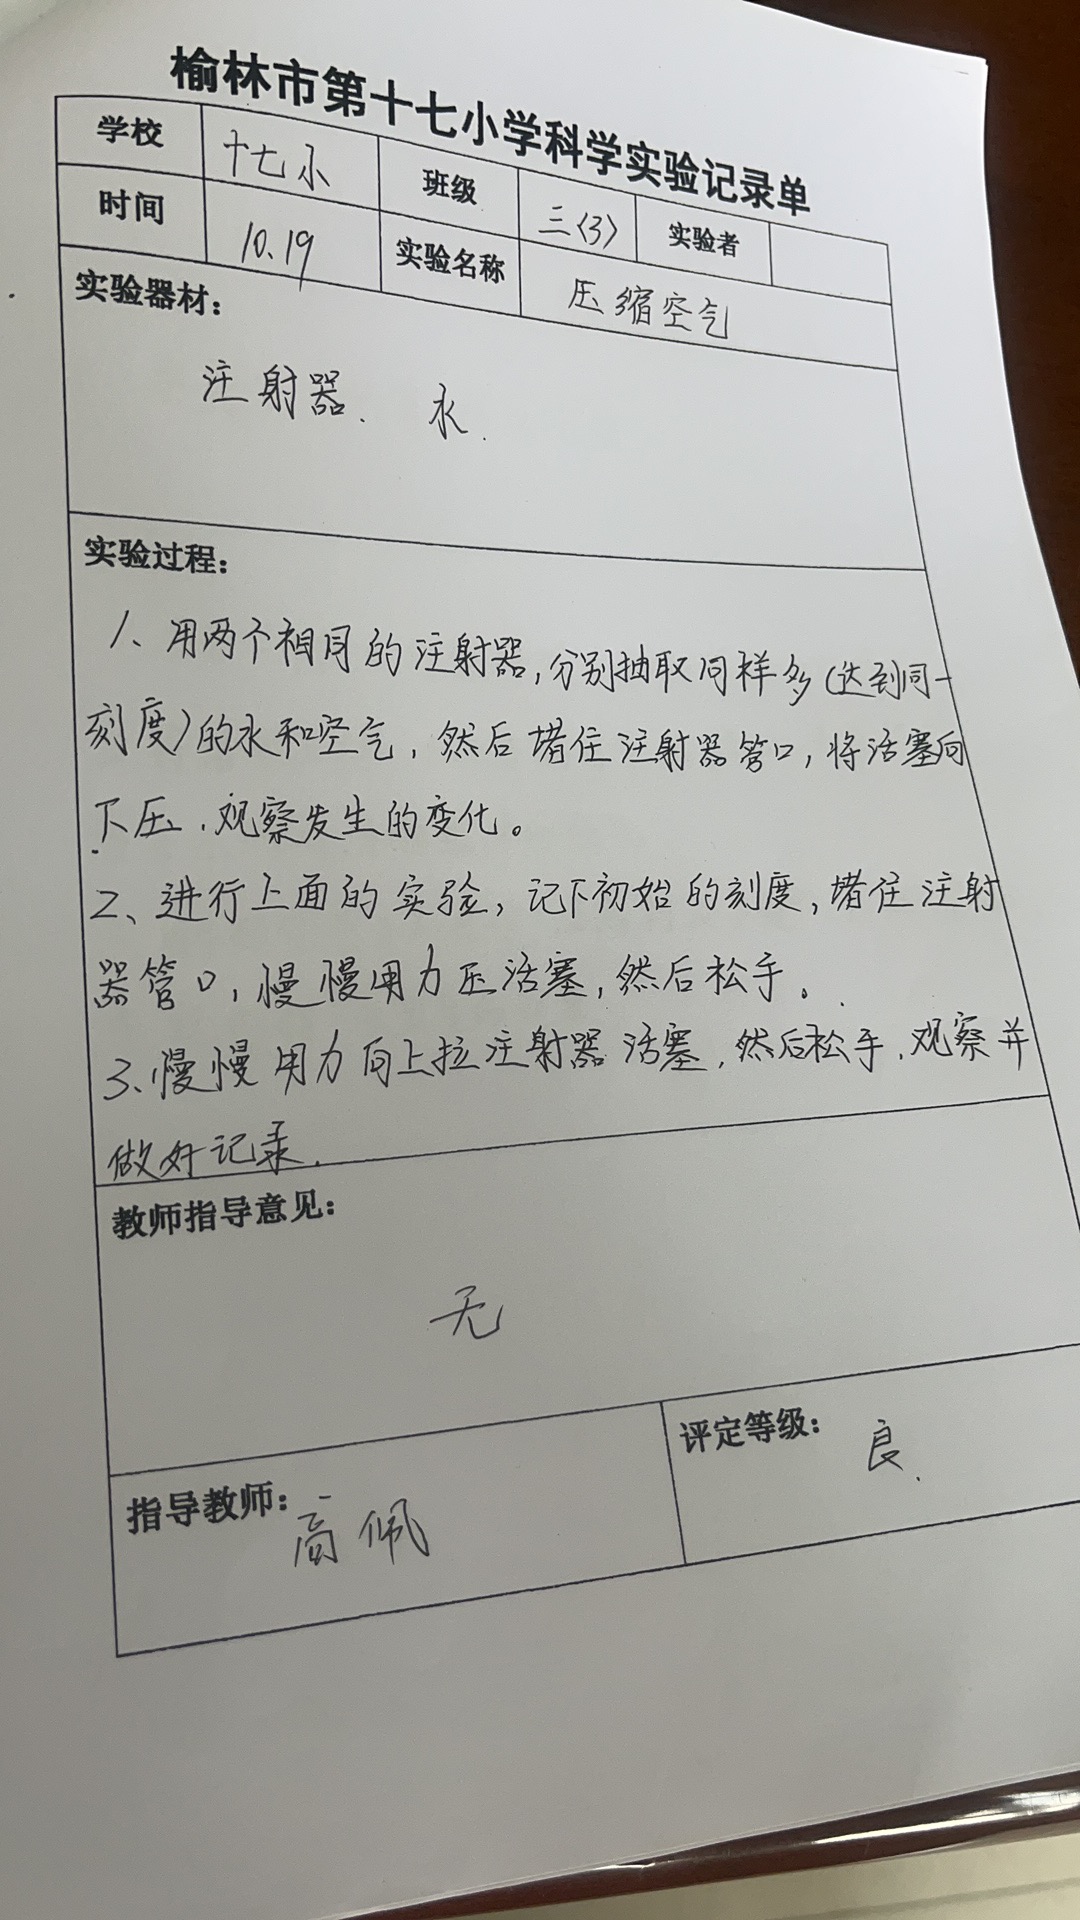 榆林市第十七小学科学实验记录单
学校 十七小 班级 三(3) 实验者
时间 10.19 实验名称 压缩空气
实验器材：
注射器. 水.
实验过程：
1、用两个相同的注射器,分别抽取同样多(达到同一
刻度)的水和空气,然后堵住注射器管口,将活塞向
下压.观察发生的变化。
2、进行上面的实验,记下初始的刻度,堵住注射
器管口,慢慢用力压活塞,然后松手。
3、慢慢用力向上拉注射器活塞,然后松手.观察并
做好记录.
教师指导意见：
无
指导教师： 高佩 评定等级： 良.